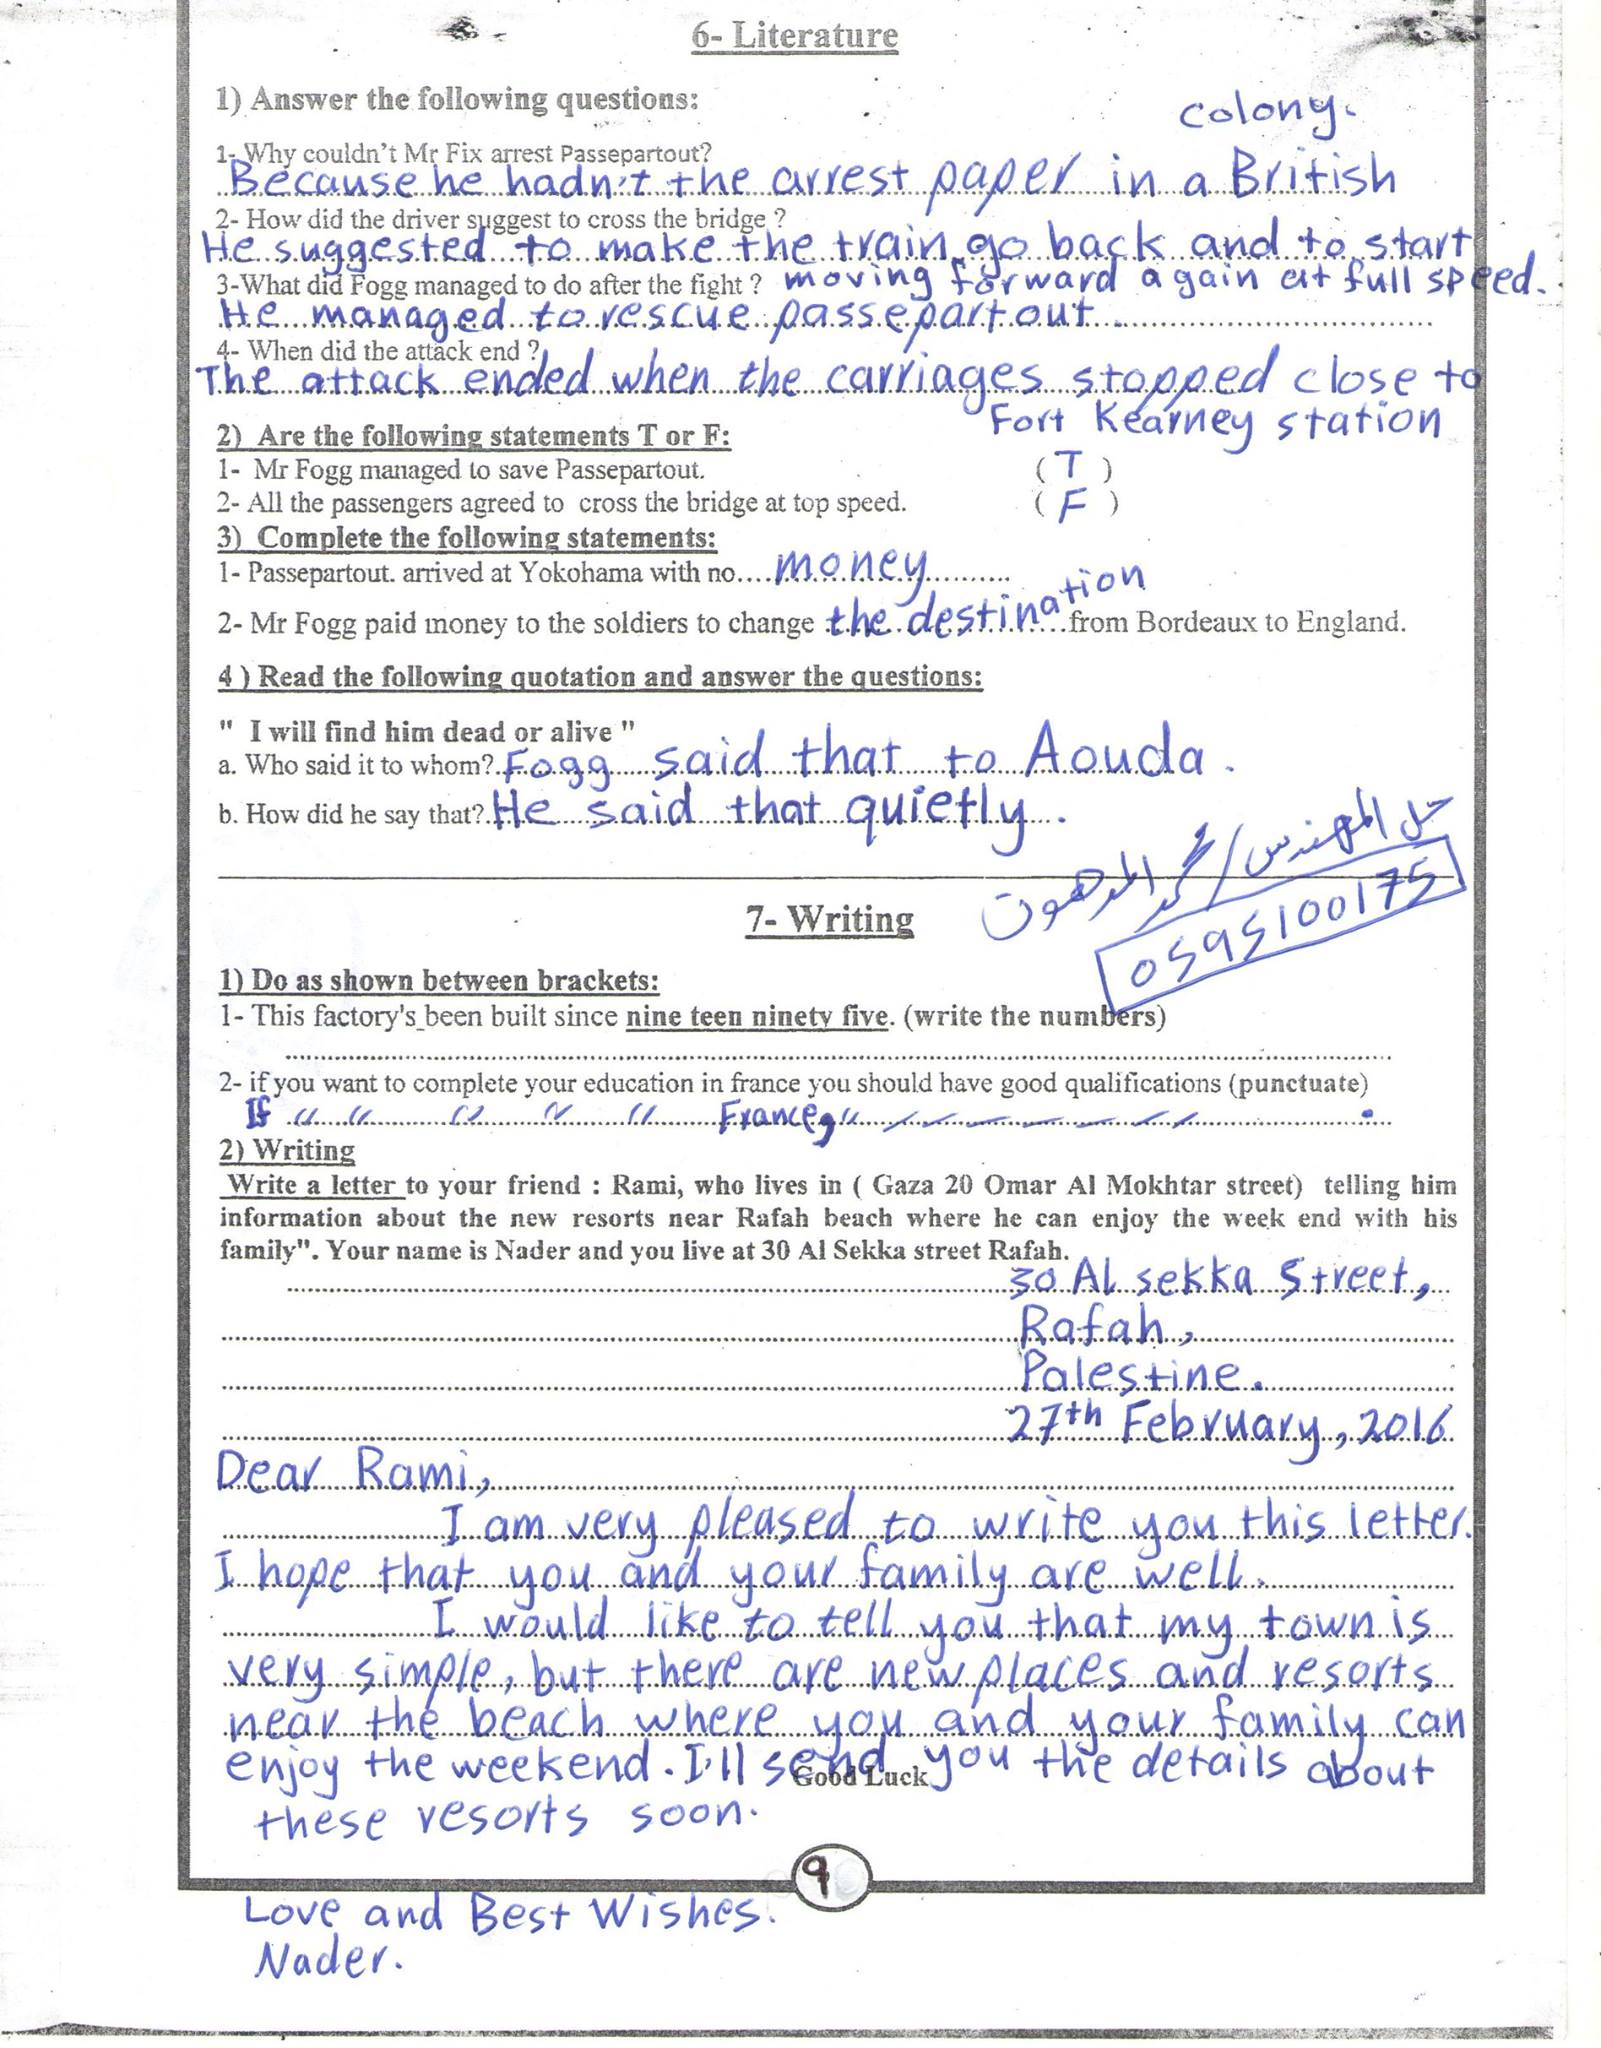 6- Literature
1) Answer the following questions:
colony.
1- Why couldn't Mr Fix arrest Passepartout?
Because he hadn't the arrest paper in a British
2- How did the driver suggest to cross the bridge ?
He suggested to make the train go back and to start
3-What did Fogg managed to do after the fight ? moving forward again at full speed.
He managed to rescue passepartout
4- When did the attack end ?
The attack ended when the carriages stopped close to
Fort Kearney station
2) Are the following statements T or F:
1- Mr Fogg managed to save Passepartout. ( T )
2- All the passengers agreed to cross the bridge at top speed. ( F )
3) Complete the following statements:
1- Passepartout. arrived at Yokohama with no....money..........
2- Mr Fogg paid money to the soldiers to change the destination from Bordeaux to England.
4 ) Read the following quotation and answer the questions:
" I will find him dead or alive "
a. Who said it to whom? Fogg said that to Aouda.
b. How did he say that? He said that quietly.
حل المهندس / محمد المدهون
0595100175
7- Writing
1) Do as shown between brackets:
1- This factory's been built since nine teen ninety five. (write the numbers)
2- if you want to complete your education in france you should have good qualifications (punctuate)
If " " " " " France, " .
2) Writing
Write a letter to your friend : Rami, who lives in ( Gaza 20 Omar Al Mokhtar street) telling him
information about the new resorts near Rafah beach where he can enjoy the week end with his
family". Your name is Nader and you live at 30 Al Sekka street Rafah.
30 AL sekka Street,
Rafah,
Palestine.
27th February, 2016
Dear Rami,
I am very pleased to write you this letter.
I hope that you and your family are well.
I would like to tell you that my town is
very simple, but there are new places and resorts
near the beach where you and your family can
enjoy the weekend. I'll send you the details about
Good Luck
these resorts soon.
9
Love and Best Wishes.
Nader.